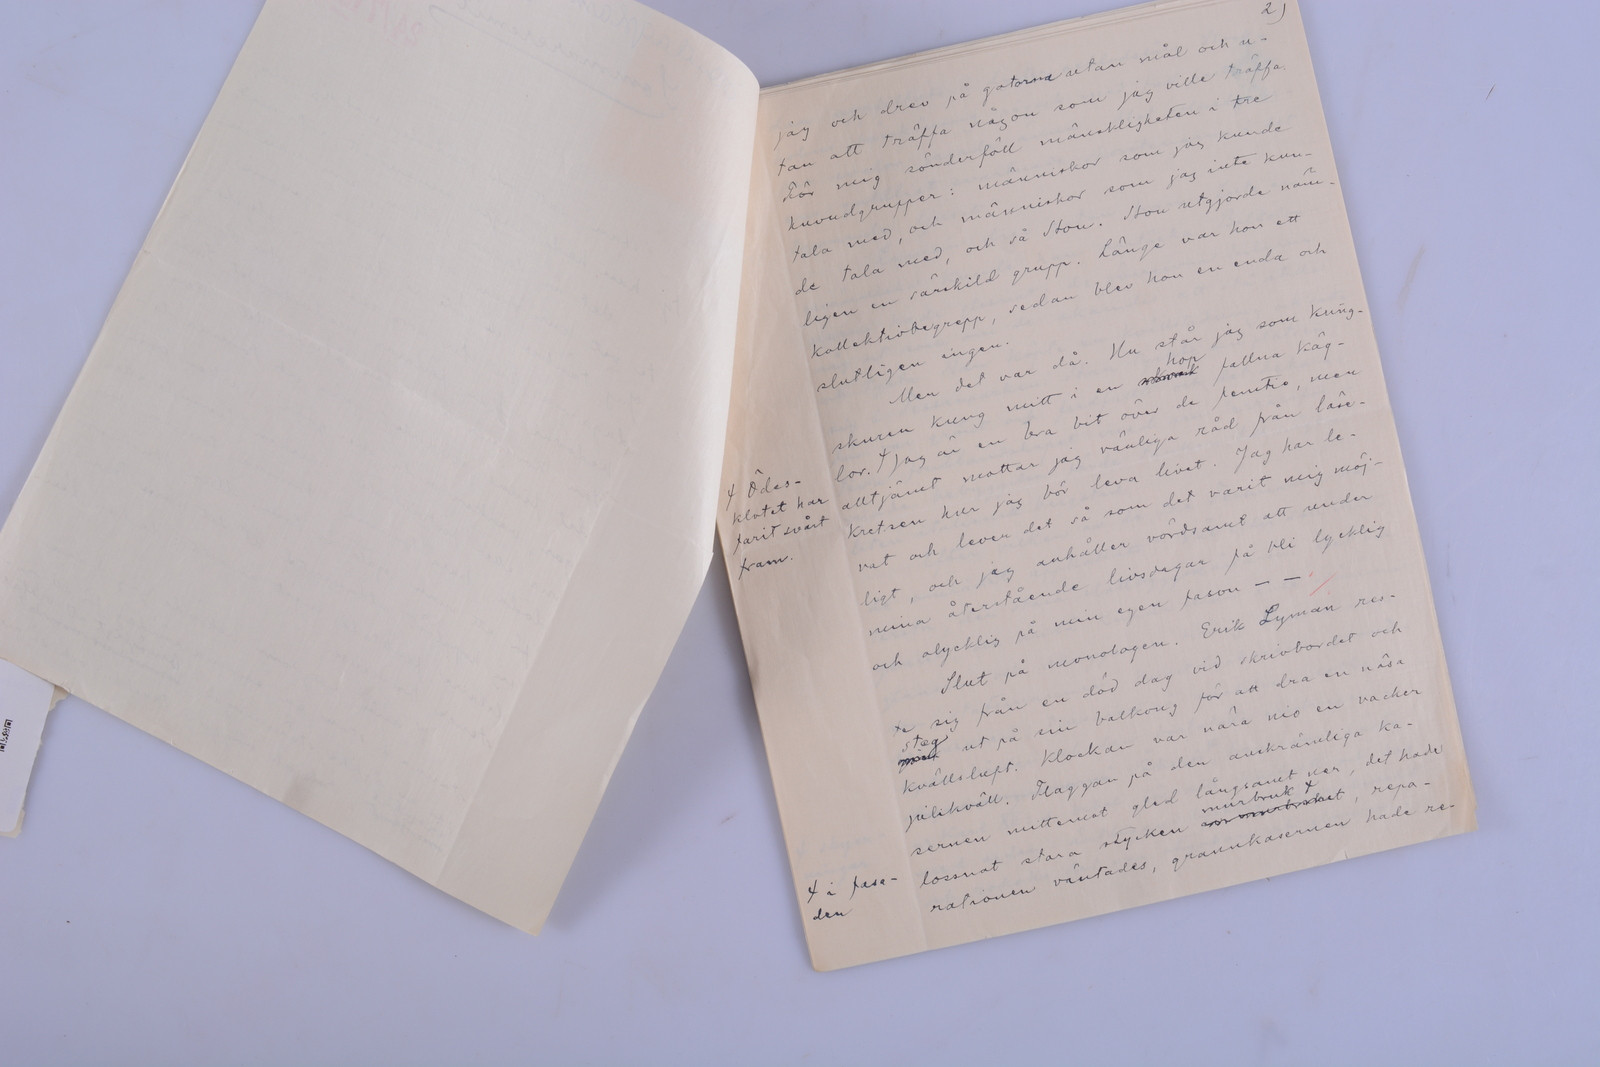 2)
jag och drev på gatorna utan mål och u-
tan att träffa någon som jag ville träffa.
För mig sönderföll mänskligheten i tre
huvudgrupper: människor som jag kunde
tala med, och människor som jag inte kun-
de tala med, och så Hon. Hon utgjorde näm-
ligen en särskild grupp. Länge var hon ett
kollektivbegrepp, sedan blev hon en enda och
slutligen ingen.
Men det var då. Nu står jag som kung-
skuren kung mitt i en hop fallna käg-
lor. + Jag är en bra bit över de femtio, men
alltjämt mottar jag vänliga råd från läse-
kretsen hur jag bör leva livet. Jag har le-
vat och lever det så som det varit mig möj-
ligt, och jag anhåller vördsamt att under
mina återstående livsdagar få bli lycklig
och olycklig på min egen fason — —
Slut på monologen. Erik Lyman res-
te sig från en död dag vid skrivbordet och
steg ut på sin balkong för att dra en näsa
kvällsluft. Klockan var nära nio en vacker
julikväll. Flaggan på den anskrämliga ka-
sernen mittemot gled långsamt ner, det hade
lossnat stora stycken murbruk +, repa-
rationen väntades, grannkasernen hade re-
+ Ödes-
klotet har
farit svårt
fram.
+ i fasa-
den